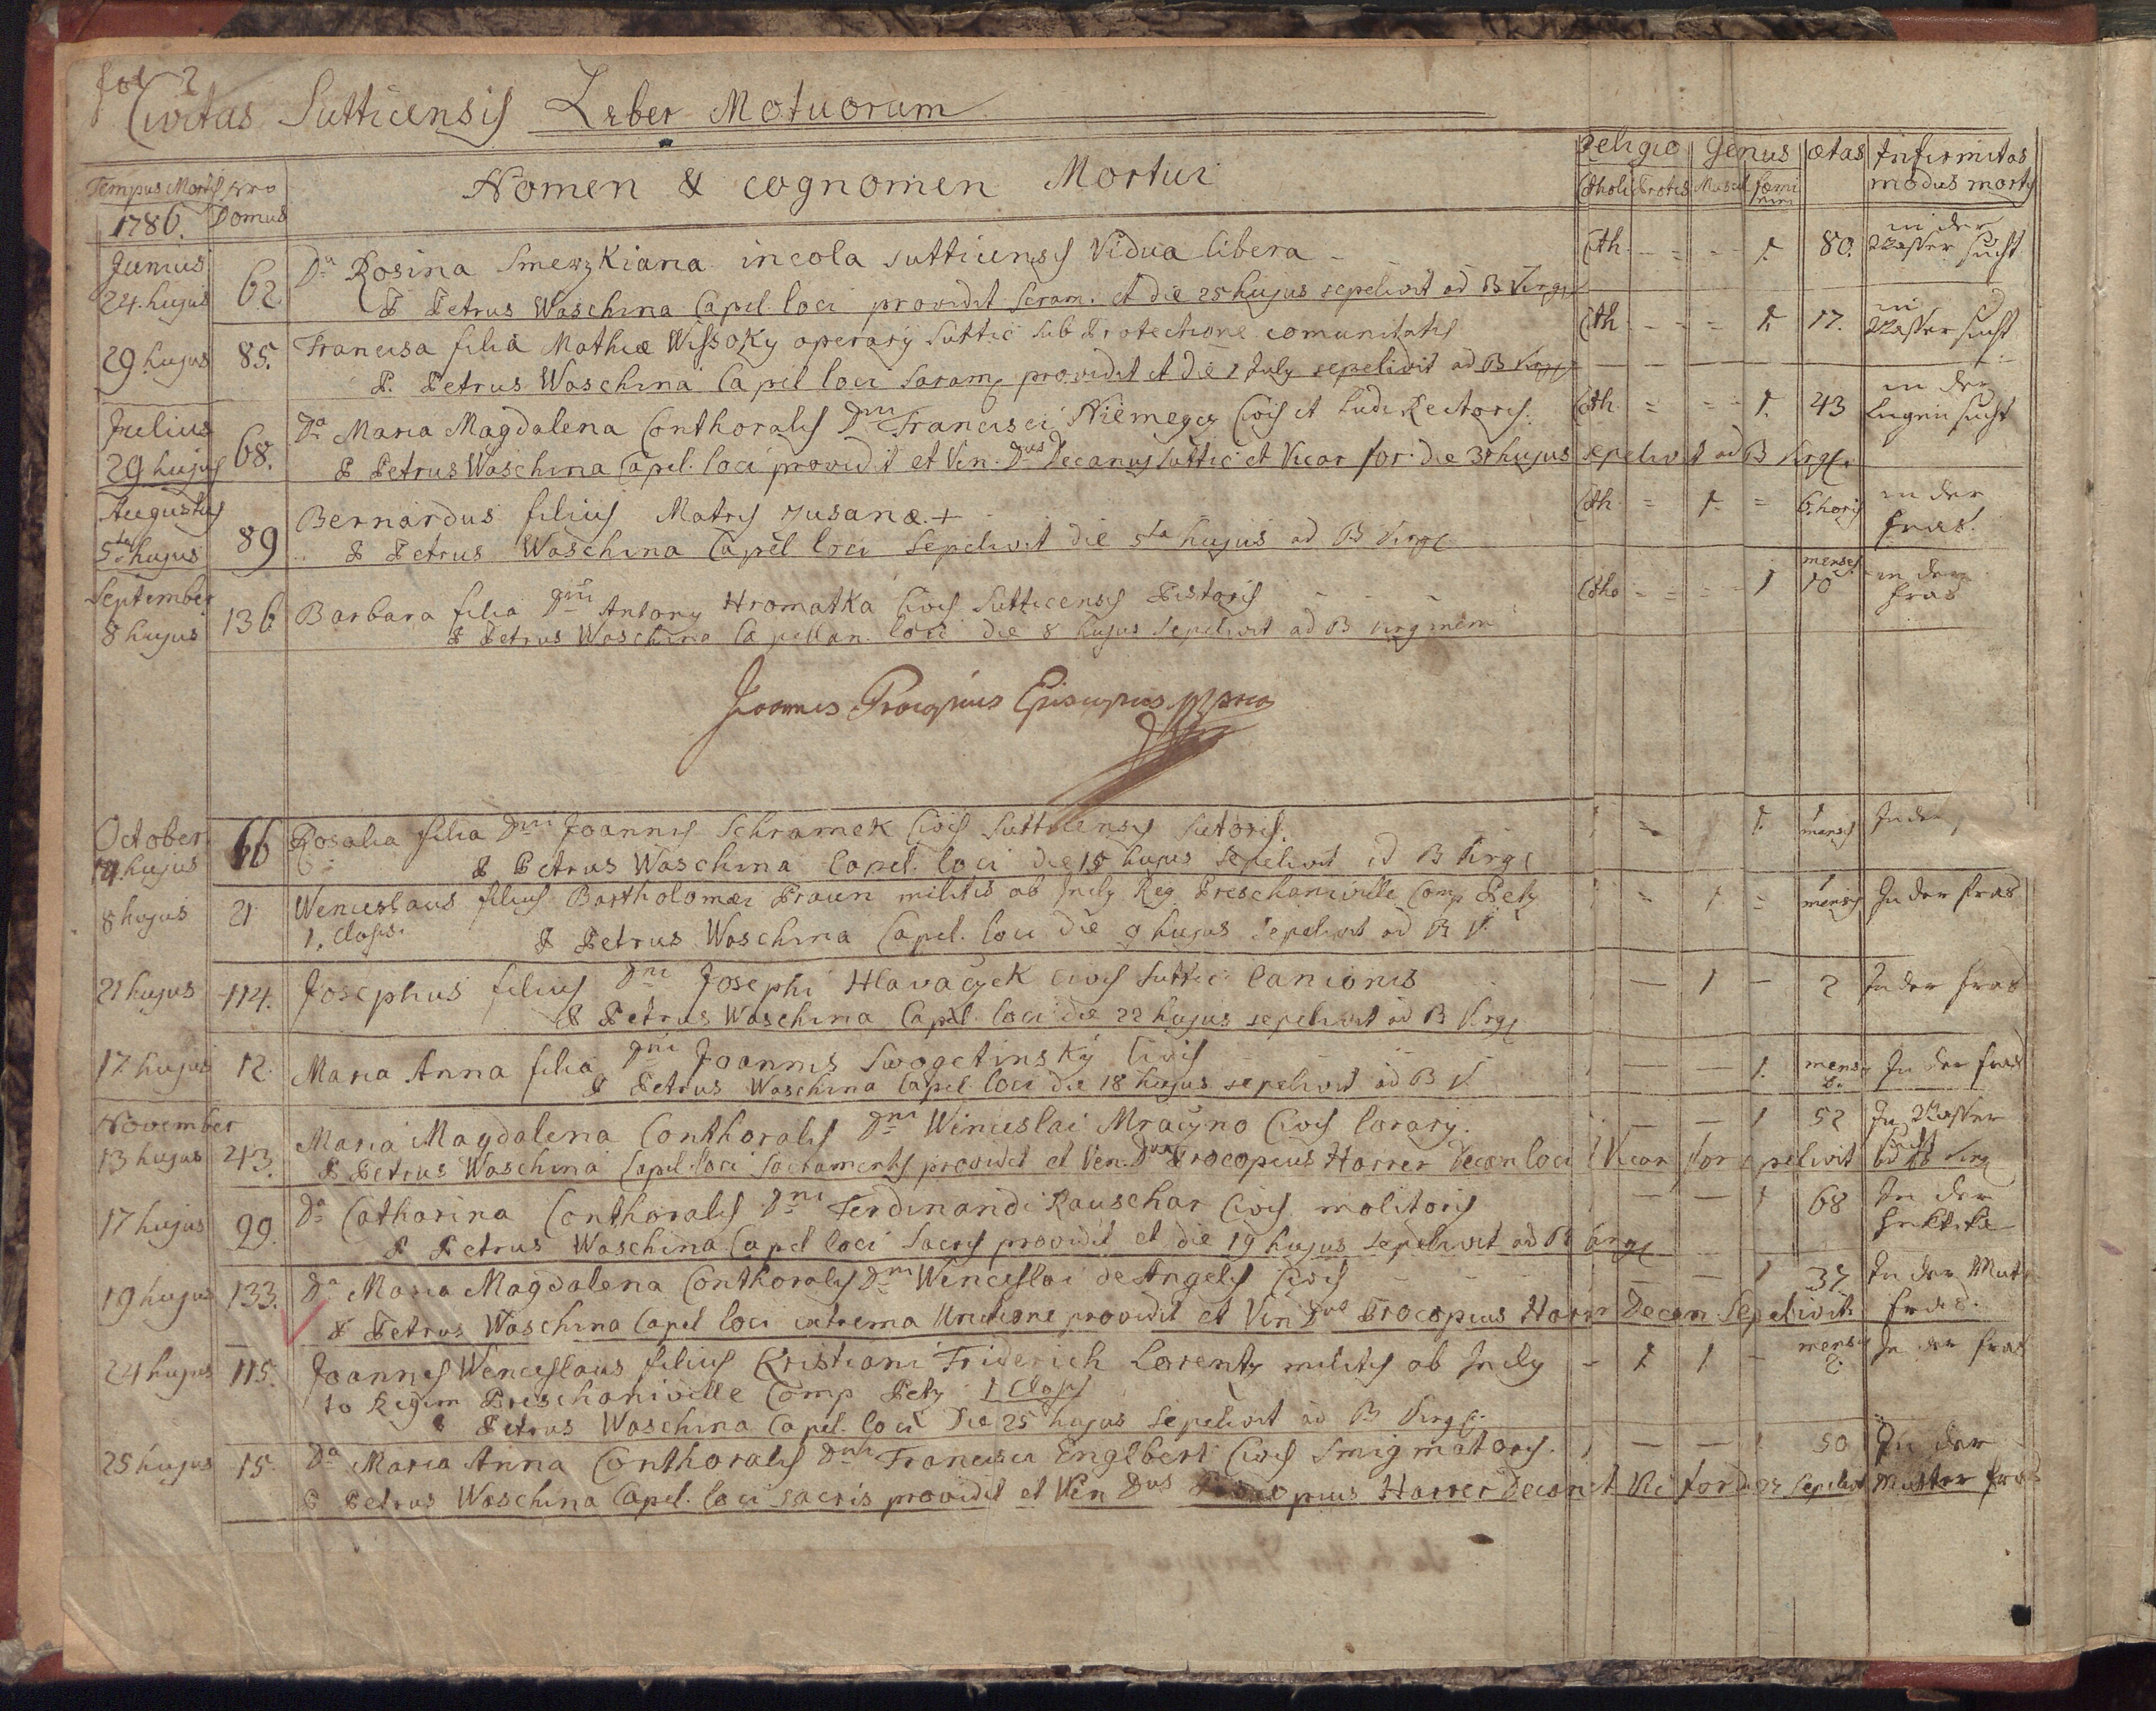 fol 2
Civitas Sutticensis Leber Motuorum
Tempus Mortis Nro Nomen & cognomen Mortui Religio Genus ætas Infirmitas
1786. Domus Catholi Protes Mascul fæmi modus mortis
Junius Da Rosina Smerzkiana incola Sutticensis Vidua libera Cth 1. 80. in der
24. hujus 62. P Petrus Waschina Capel. loci providit Scram. et die 25 hujus sepelivit ad B Virg Wasser sucht
29 hujus 85. Francisa filia Mathiæ Wissoky operary Suttic sub Protectione comunitatis Cth 1. 17. in Wasser sucht
P. Petrus Waschina Capel loci Saram providit et die 1 July sepelivit ad B Virg
Julius Da Maria Magdalena Conthoralis Dni Francisci Niemegez Civis et Ludi Rectoris. Cth. 1. 43 in der
29 hujus 68. P Petrus Waschina Capel. loci providit et Ven. Dus Decanus Suttic et Vicar for. die 31 hujus sepelivit ad B Virg. Lugensucht
Augustus Bernardus filius Matris Susanæ. + Cth. = 1. = 6. horis in der
5ta hujus 89 P Petrus Waschina Capel loci Sepelivit die 5ta hujus ad B Virg fras.
September Barbara filia Dni Antony Hromatka Civis Sutticensis Pistoris Catho 1 menses 10 in der
8 hujus 136 P Petrus Waschina Capellan. loci die 8 hujus Sepelivit ad B virginem fras
Joannes Procopius Episcopus mpria
October 66 Rosalia filia Dni Joannis Schramek Civis Sutticensis Sutoris. 1. 1 mensis In der
14. hujus P Petrus Waschina Capel. loci die 15 hujus Sepelivit ad B Virg
8 hujus 21 Wenceslaus filius Bartholomæi Praun militis ab Incly Reg Preschainville Comp Petz 1 = 1 mensis In der fras
1. classis P Petrus Waschina Capel. loci die 9 hujus Sepelivit ad B V.
21 hujus 114. Josephus filius Dni Josephi Hlavaczek civis Suttic lanionis 1 2 In der fras
P Petrus Waschina Capel. loci die 22 hujus sepelivit ad B Virg
17 hujus 12. Maria Anna filia Dni Joannis Swogetinský Civis 1. mens In der fras
P Petrus Waschina Capel loci die 18 hujus sepelivit ad B V.
November Maria Magdalena Conthoralis Dni Winceslai Mraczno Civis lorary. 1 52 In Wasser
13 hujus 43. P Petrus Waschina Capel. loci Sacramentis providit et Ven. Dus Procopius Horrer Decan loci Vicar for sepelivit ad B Virg sucht
17 hujus 99. Da Catharina Conthoralis Dni Ferdinandi Rauschar Civis molitoris 1 68 In der
P Petrus Waschina Capel loci Sacris providit et die 19 hujus Sepelivit ad B Virg
19 hujus 133. Da Maria Magdalena Conthoralis Dni Wenceslai de Angelis Civis 1 37 In der Mut
P Petrus Waschina Capel loci extrema Unctione providit et Ven Dus Procopius Horrer Decan Sepelivit. fras.
24 hujus 115. Joannes Wenceslaus filius Kristiani Friderich Lorentz militis ab Incly 1 1 mensis 2. In der fras
to Regim Preschainville Comp Petz 1 Classis
P Petrus Waschina Capel. loci die 25 hujus Sepelivit ad B Virg
25 hujus 15. Da Maria Anna Conthoralis Dni Francisci Englbert Civis Smigmatoris. 1 50 In der
P Petrus Waschina Capel. loci sacris providit et Ven Dus Procopius Horrer Decan et Vic for 27 Sepelivit Mutter fras